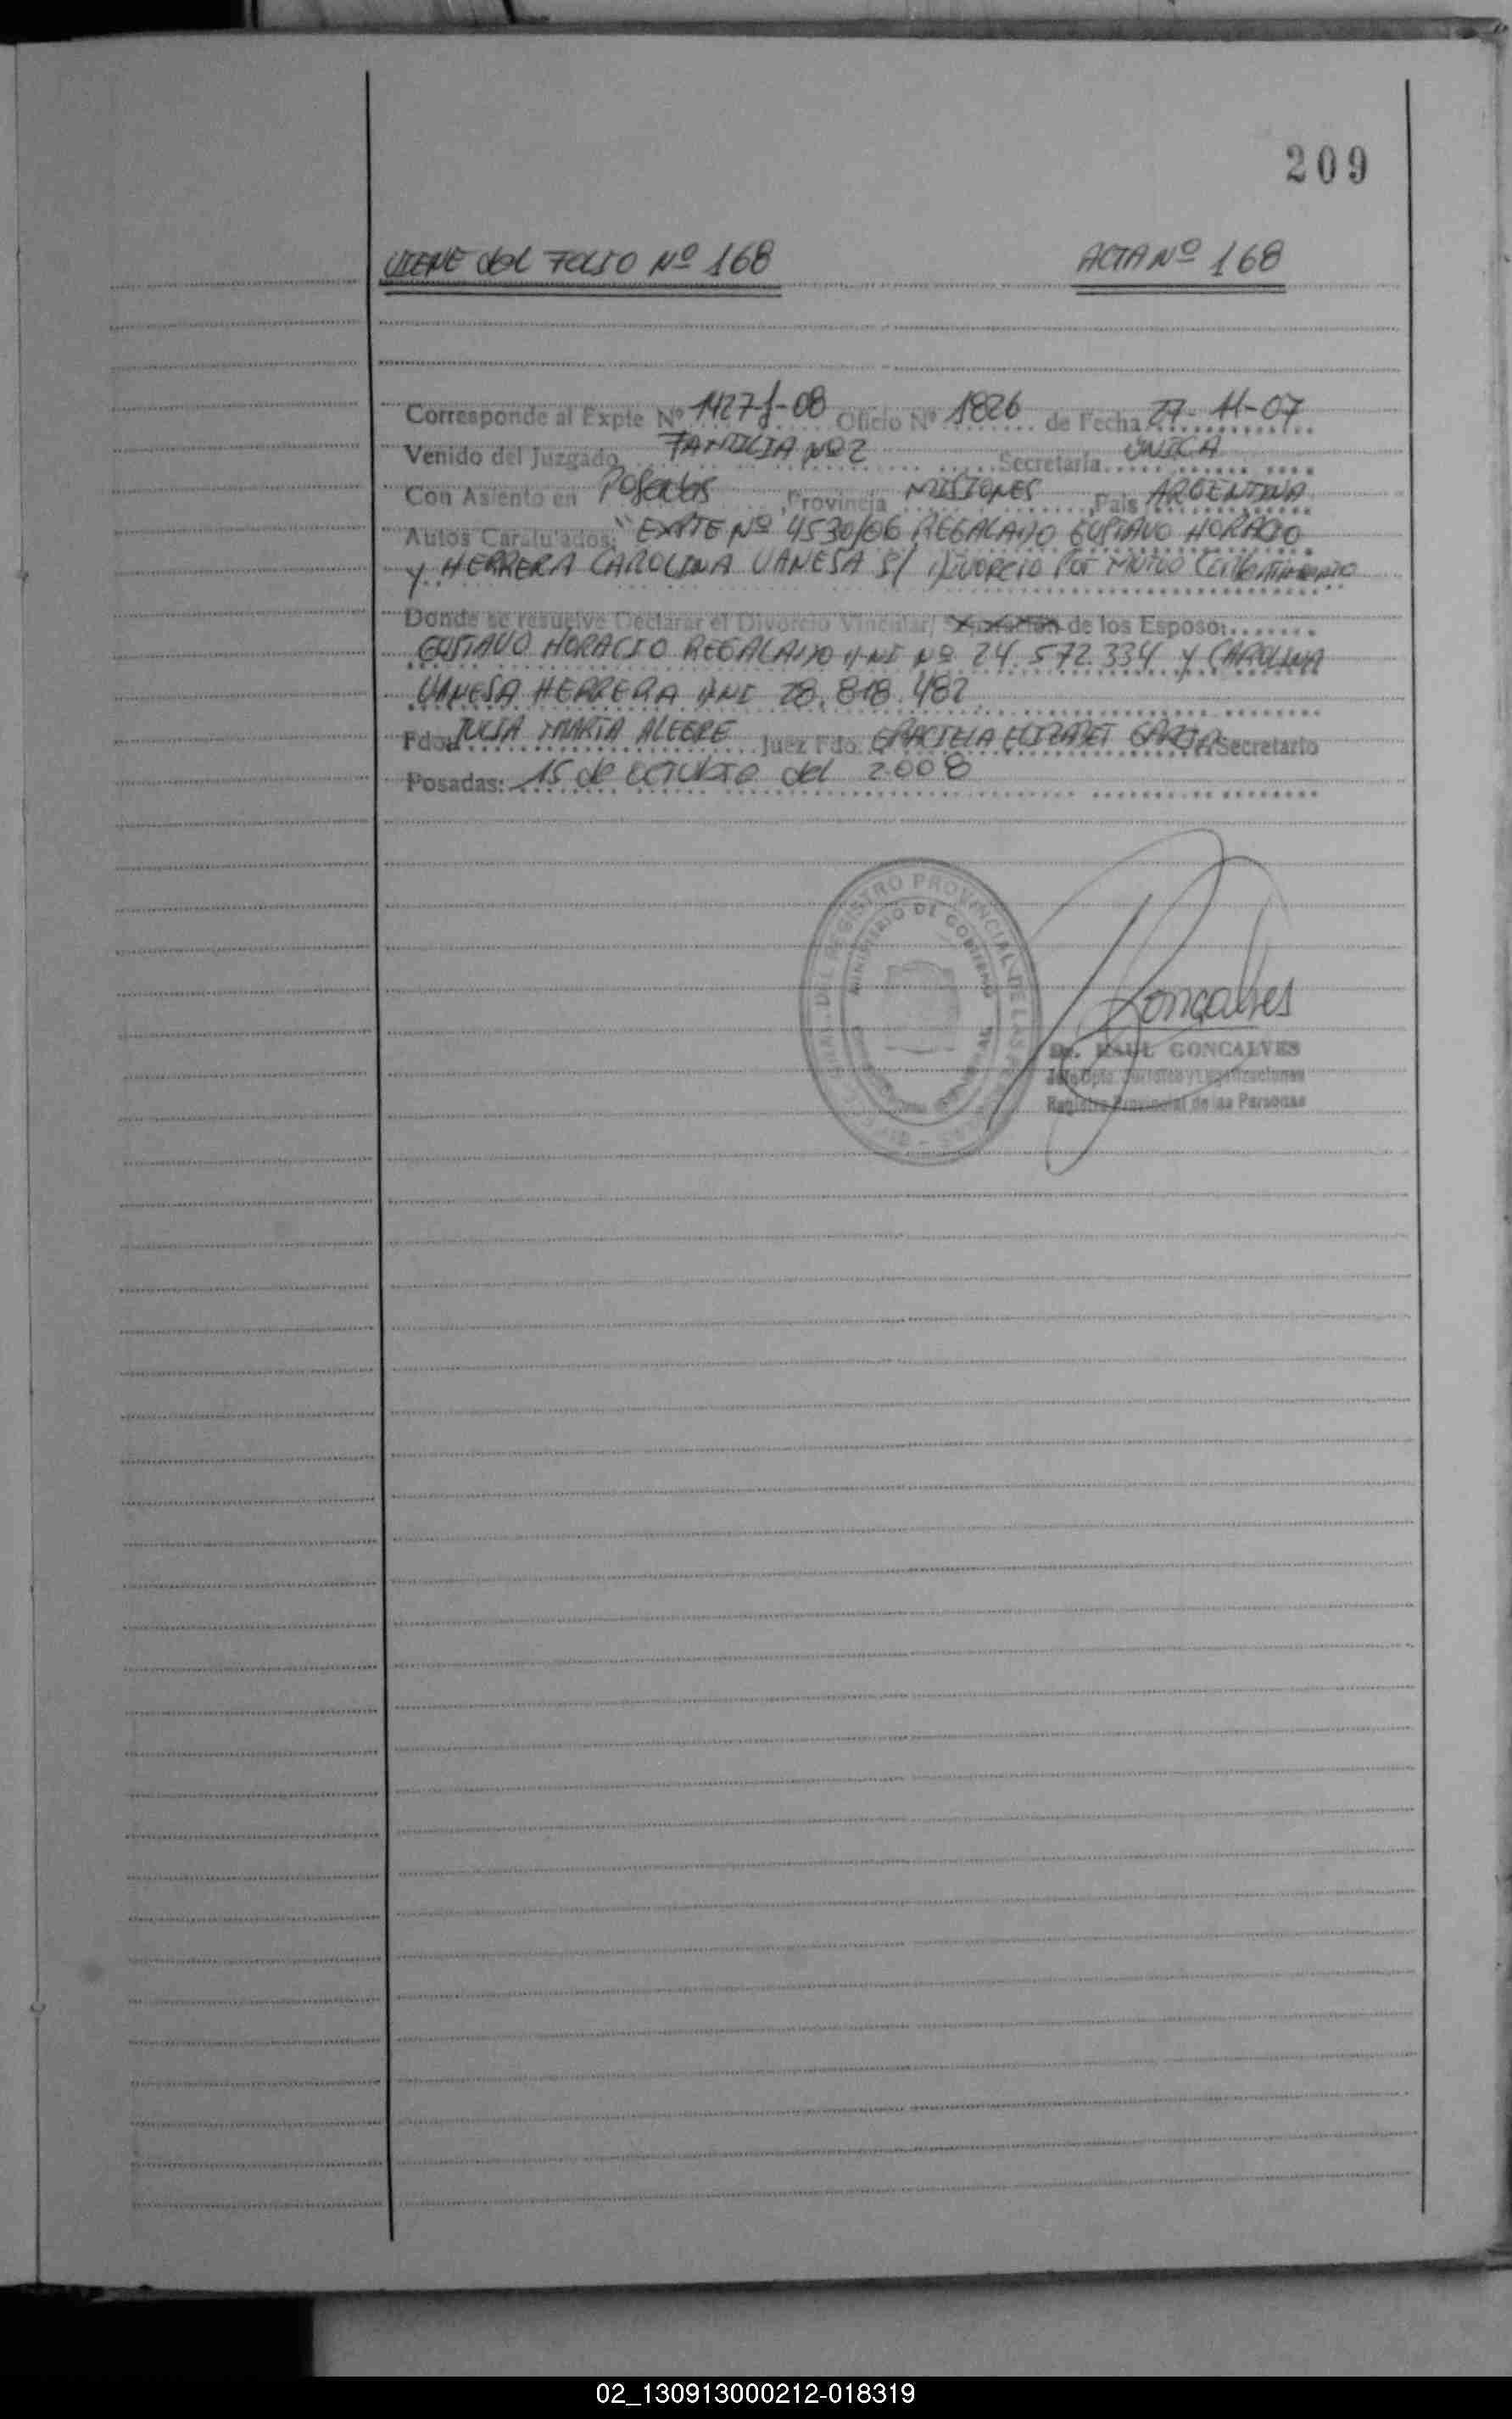 209
VIENE del FOLIO Nº 168 ACTA Nº 168
Corresponde al Expte Nº 1427-J-08 Oficio Nº 1826 de Fecha 27-11-07
Venido del Juzgado FAMILIA Nº 2 Secretaría UNICA
Con Asiento en Posadas, Provincia MISIONES, País ARGENTINA
Autos Caratulados: "EXPTE Nº 4530/06 REGALADO GUSTAVO HORACIO
Y HERRERA CAROLINA VANESA S/ DIVORCIO POR MUTUO Consentimiento
Donde se resuelve Declarar el Divorcio Vincular/ Separación de los Esposos
GUSTAVO HORACIO REGALADO DNI Nº 24.572.334 Y CAROLINA
VANESA HERRERA DNI 28.818.482
Fdo. JULIA MARIA ALEGRE Juez Fdo. GRACIELA ELIZABET GARCIA Secretario
Posadas: 15 de octubre del 2008
REGISTRO PROVINCIAL DE LAS
MINISTERIO DE GOBIERNO
Goncalves
Dr. RAUL GONCALVES
Jefe Dpto. y Legalizaciones
Registro Provincial de las Personas
02_130913000212-018319